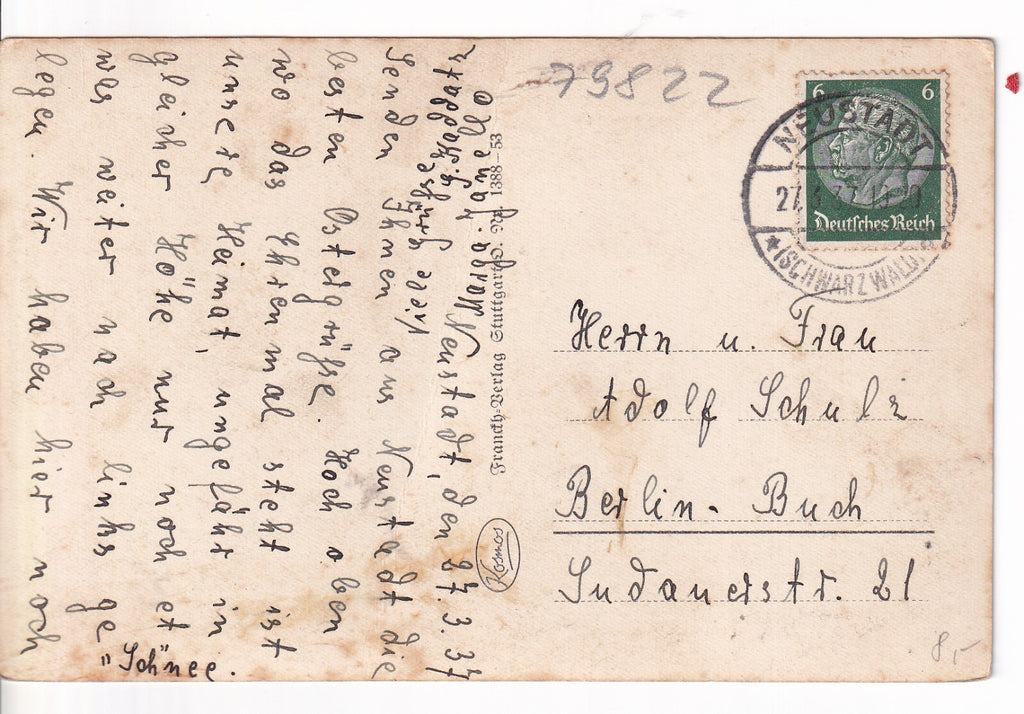 79822
6 6
Deutsches Reich
NEUSTADT
(SCHWARZWALD)
Herrn u. Frau
Adolf Schulz
Berlin-Buch
Sudauerstr. 21
Franckh-Verlag Stuttgart O. Nr. 1388–53
Kosmos
Neustadt, den 27.3.37
Senden Ihnen aus Neustadt die
besten Ostergrüße. Hoch oben
wo das Ehrenmal steht ist
unsere Heimat, ungefähr in
gleicher Höhe nur noch et
was weiter nach links ge
legen. Wir haben hier noch
"Schnee".
Viele Grüße
8,-